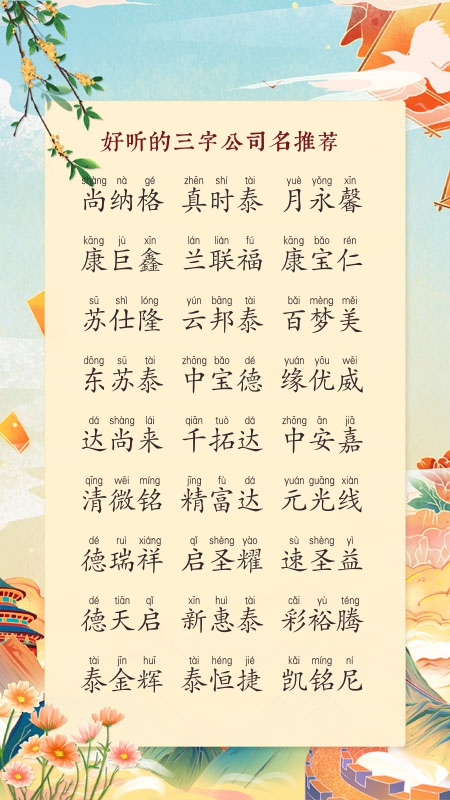 好听的三字公司名推荐
shàng nà gé zhēn shí tài yuè yǒng xīn
尚纳格 真时泰 月永馨
kāng jù xīn lán lián fú kāng bǎo rén
康巨鑫 兰联福 康宝仁
sū shì lóng yún bāng tài bǎi mèng měi
苏仕隆 云邦泰 百梦美
dōng sū tài zhōng bǎo dé yuán yōu wēi
东苏泰 中宝德 缘优威
dá shàng lái qiān tuò dá zhōng ān jiā
达尚来 千拓达 中安嘉
qīng wēi míng jīng fù dá yuán guāng xiàn
清微铭 精富达 元光线
dé ruì xiáng qǐ shèng yào sù shèng yì
德瑞祥 启圣耀 速圣益
dé tiān qǐ xīn huì tài cǎi yù téng
德天启 新惠泰 彩裕腾
tài jīn huī tài héng jié kǎi míng ní
泰金辉 泰恒捷 凯铭尼